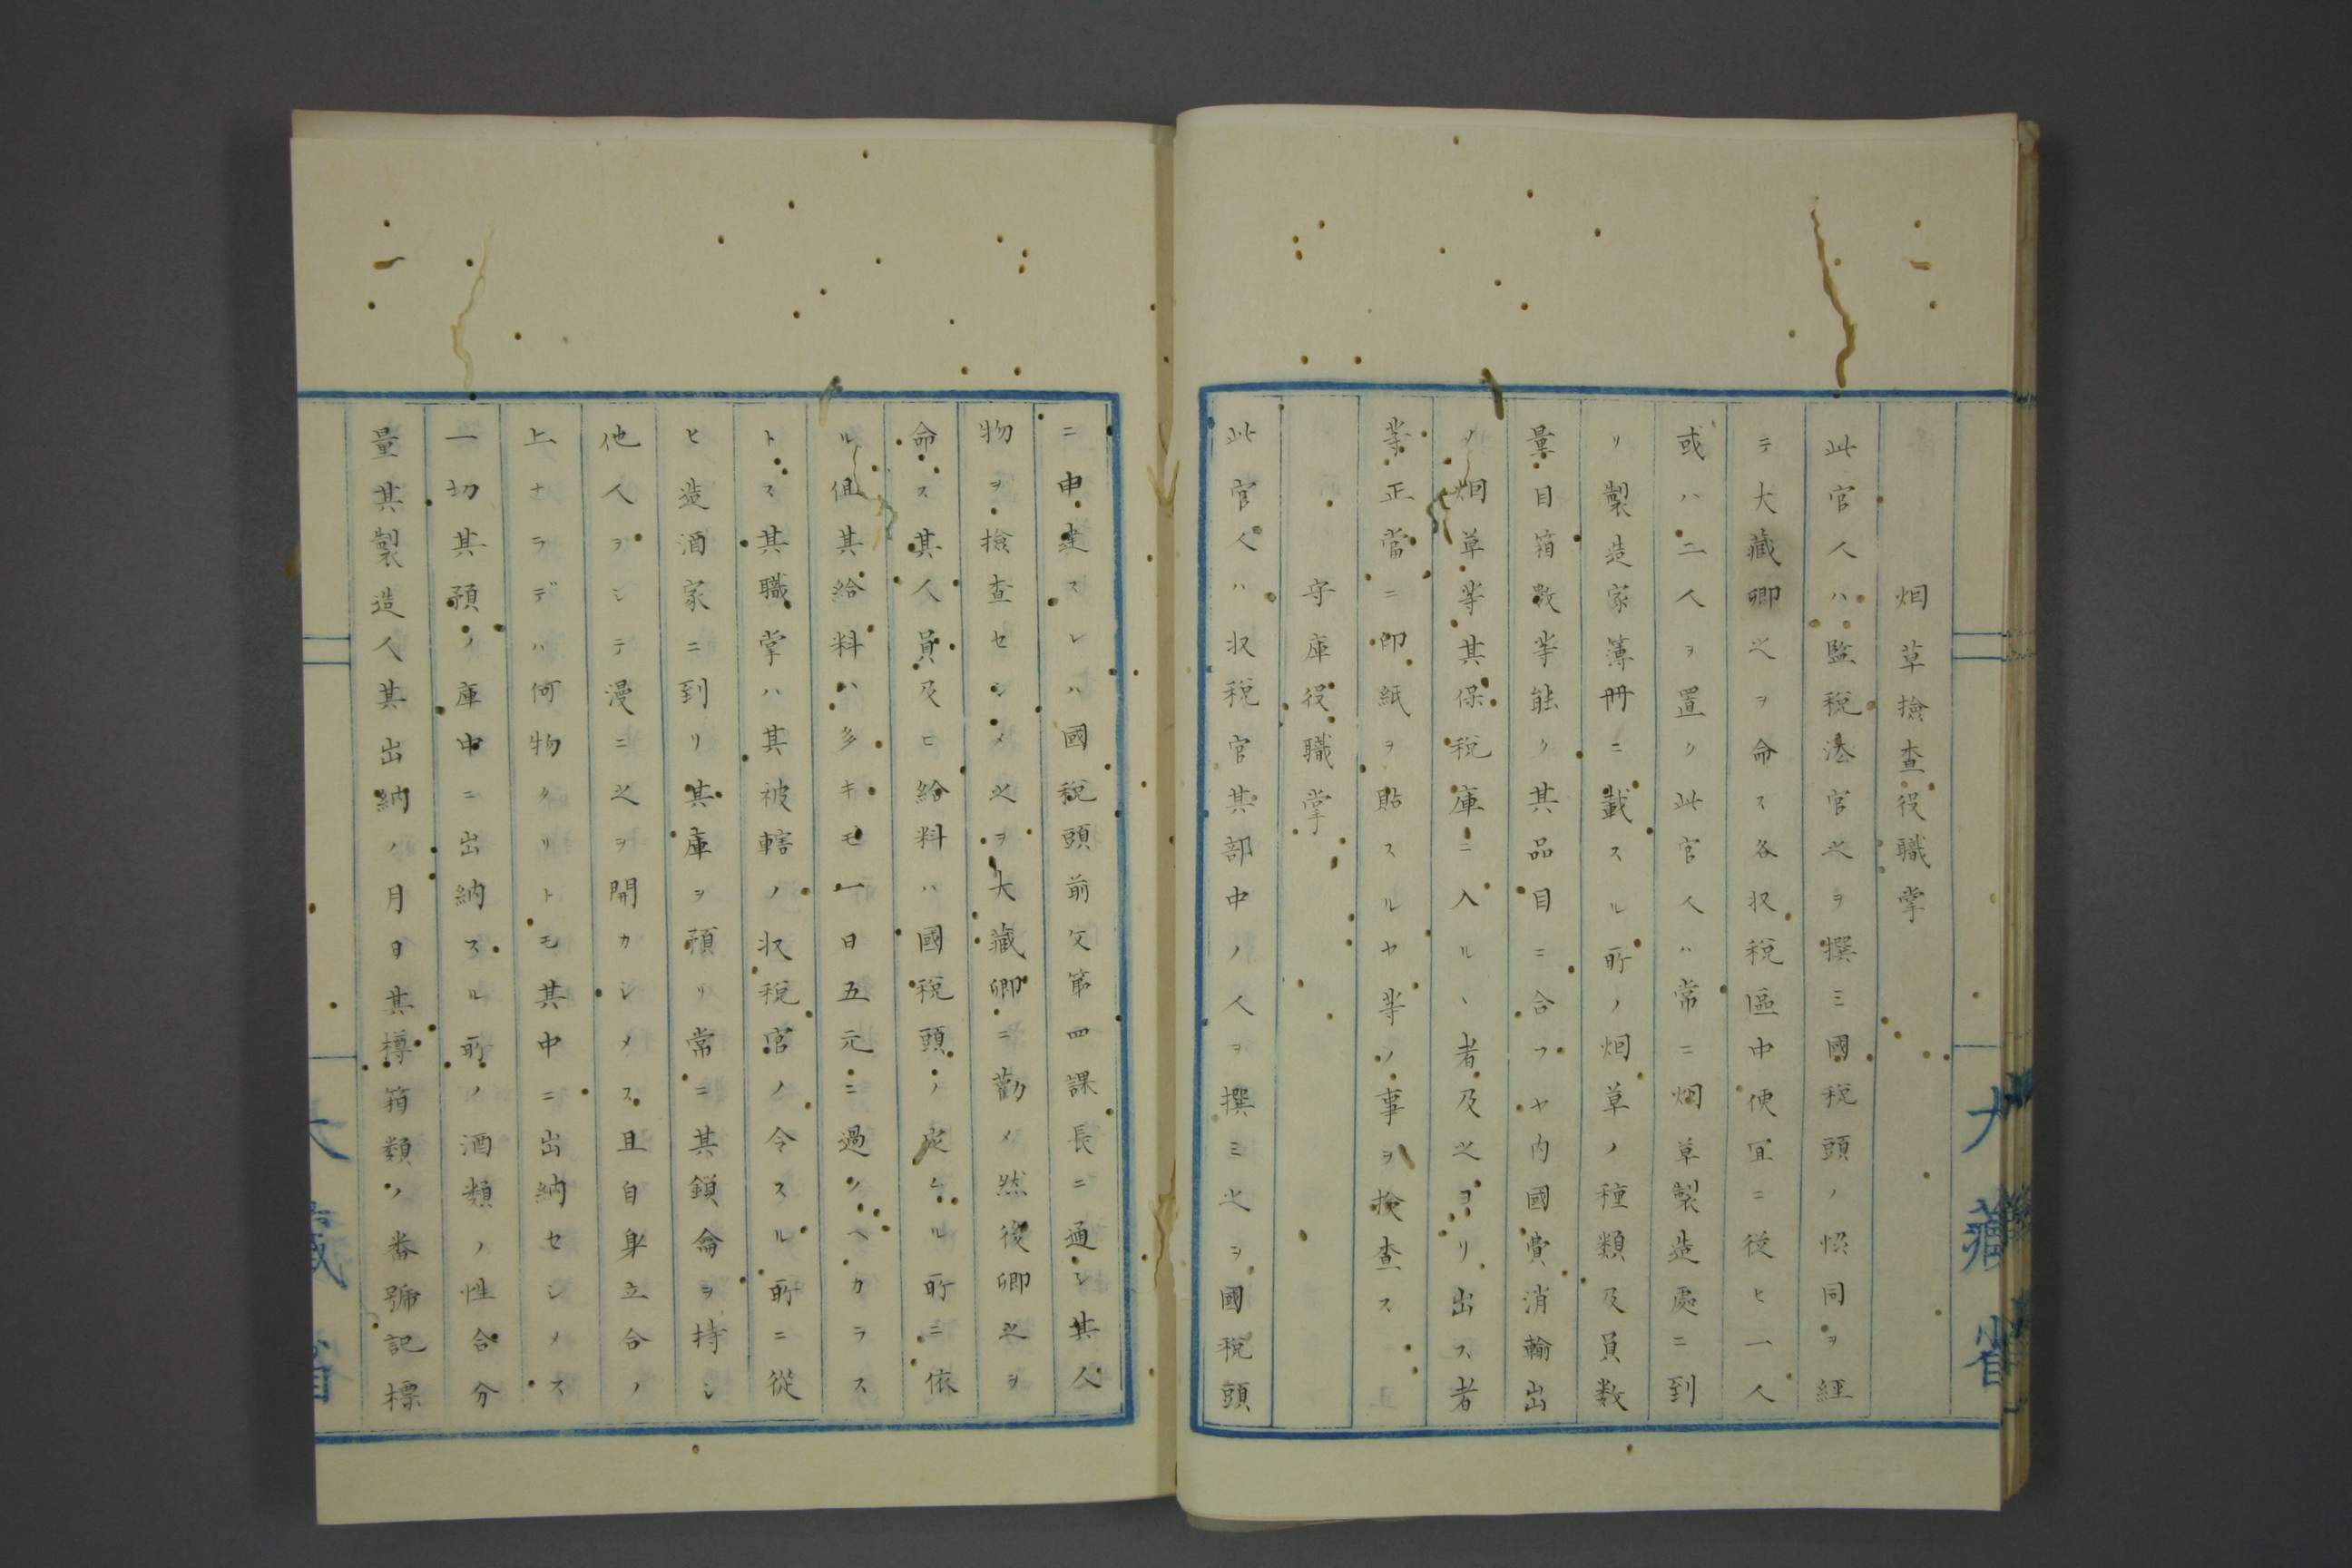 烟草撿査役職掌
此官人ハ監税法官之ヲ撰ミ國税頭ノ恊同ヲ經
テ大藏卿之ヲ命ス各収税區中便冝ニ從ヒ一人
或ハ二人ヲ置ク此官人ハ常ニ烟草製造處ニ到
リ製造家簿冊ニ載スル所ノ烟草ノ種類及員数
量目箱數等能ク其品目ニ合フヤ内國費消輸出
ノ烟草等其保税庫ニ入ルヽ者及之ヨリ出ス者
等正當ニ印紙ヲ貼スルヤ等ノ事ヲ撿査ス
守庫役職掌
此官人ハ収税官其部中ノ人ヲ撰ミ之ヲ國税頭
ニ申達スレハ國税頭前文第四課長ニ通シ其人
物ヲ撿査セシメ之ヲ大藏卿ニ勸メ然後卿之ヲ
命ス其人員及ヒ給料ハ國税頭ノ定ムル所ニ依
ル但其給料ハ多キモ一日五元ニ過クヘカラス
トス其職掌ハ其被轄ノ収税官ノ令スル所ニ從
ヒ造酒家ニ到リ其庫ヲ預リ常ニ其鎖鑰ヲ持シ
他人ヲシテ漫ニ之ヲ開カシメス且自身立合ノ
上ナラデハ何物タリトモ其中ニ出納セシメス
一切其預ノ庫中ニ出納スル所ノ酒類ノ性合分
量其製造人其出納ノ月日其樽箱類ノ番號記標
大藏省